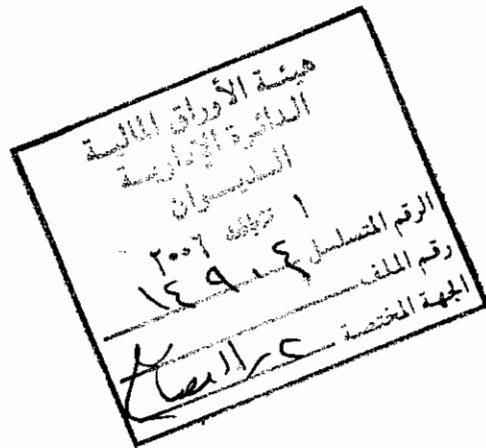 هيئة الأوراق المالية
الدائرة الإدارية
الديوان
١ ٢٠٠٦
الرقم المتسلسل ١٤٩٠٤
رقم الملف
الجهة المختصة